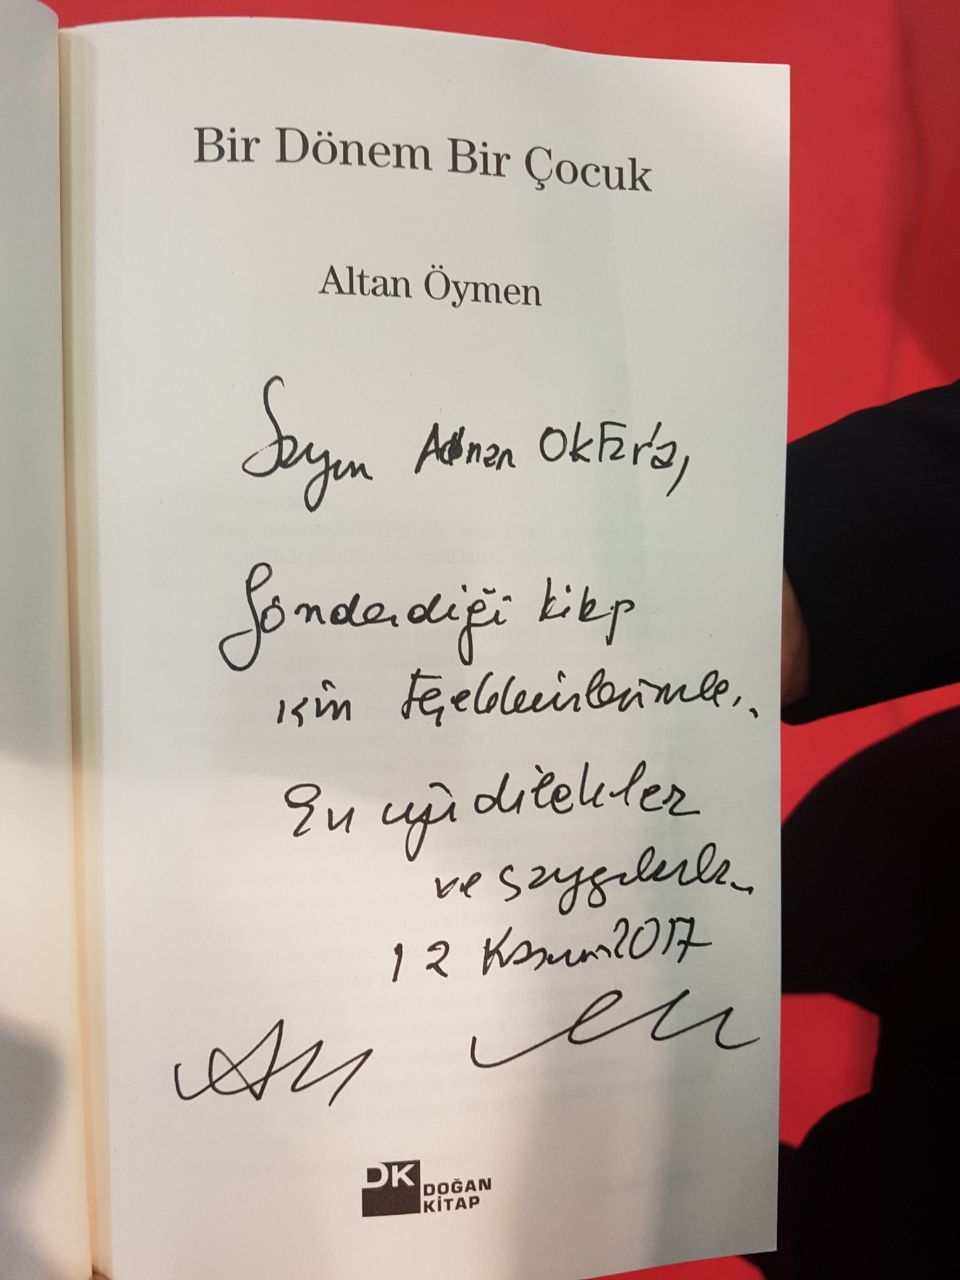 Bir Dönem Bir Çocuk
Altan Öymen
Sayın Adnan Oktar'a,
Gönderdiği kitap
için teşekkürlerimle..
En iyi dilekler
ve saygılarla..
12 Kasım 2017
DK DOĞAN
KİTAP